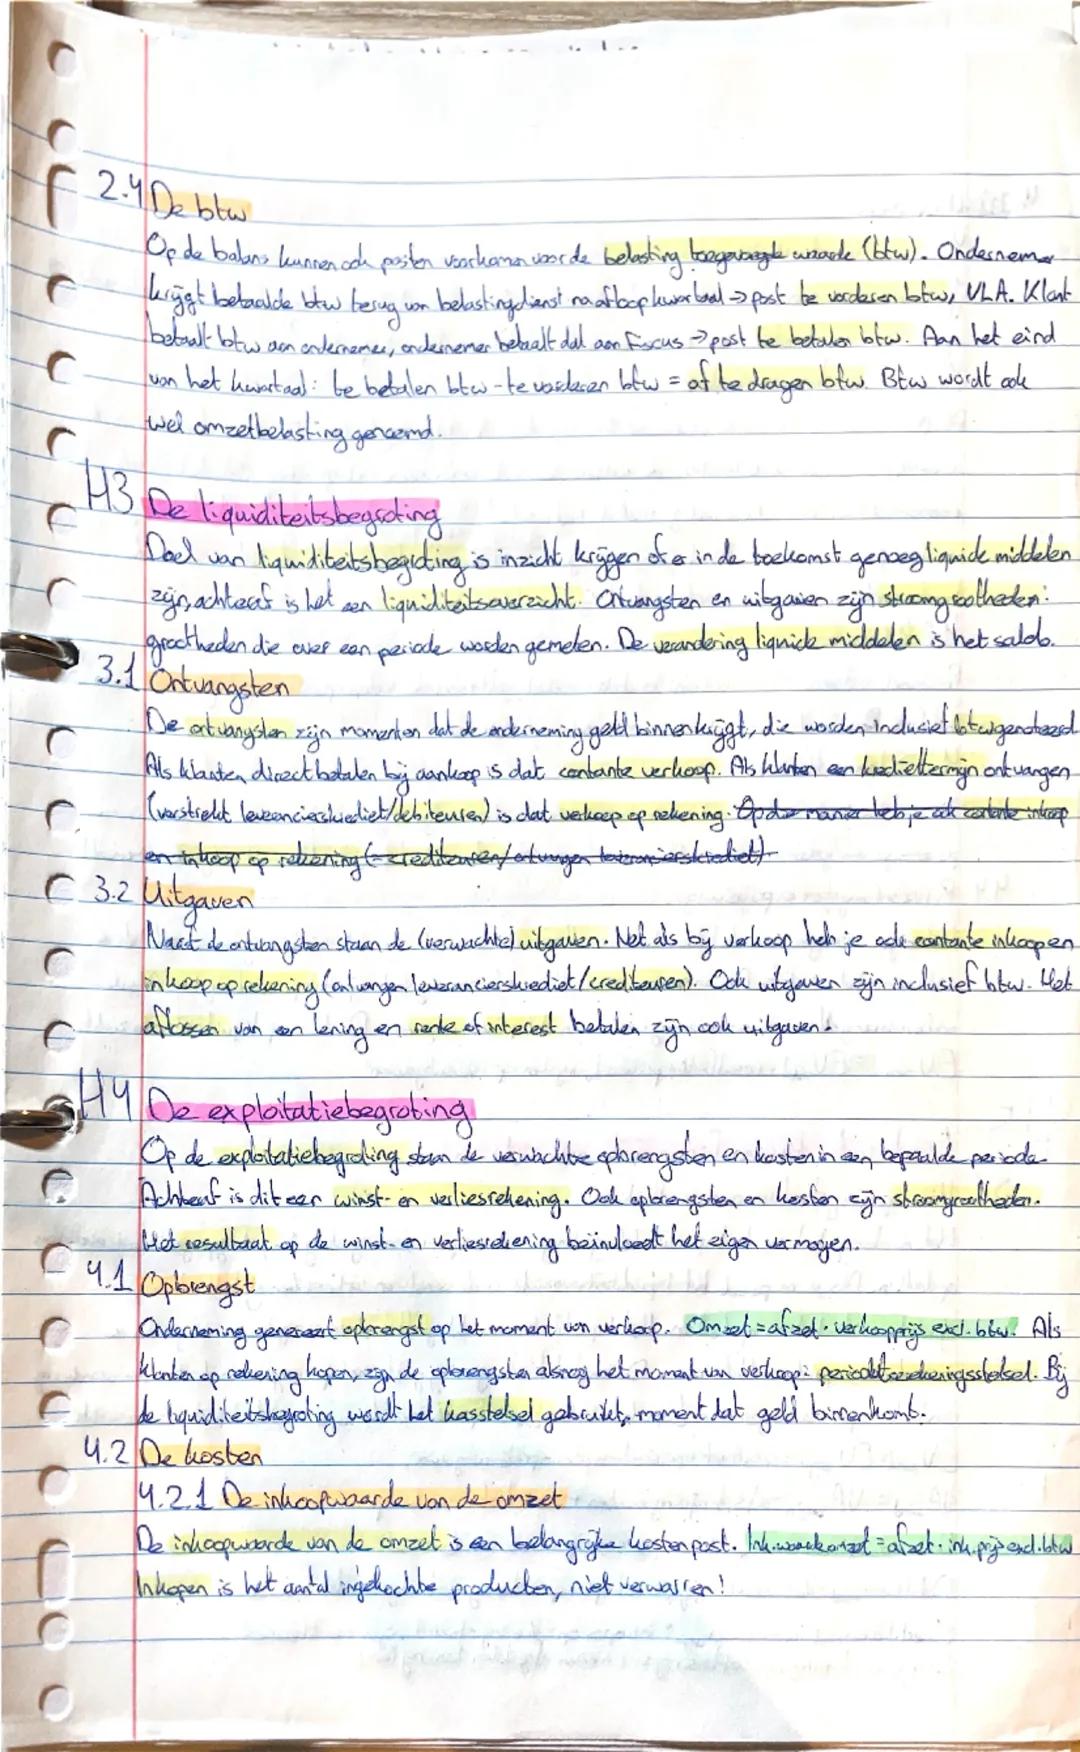 2.4 De btw
Op de balans kunnen ook posten voorkomen voor de belasting toegevoegde waarde (btw). Ondernemer
krijgt betaalde btw terug van belastingdienst na afloop kwartaal → post te vorderen btw, VLA. Klant
betaalt btw aan ondernemer, ondernemer betaalt dat aan fiscus → post te betalen btw. Aan het eind
van het kwartaal: te betalen btw - te vorderen btw = af te dragen btw. Btw wordt ook
wel omzetbelasting genoemd.
H3 De liquiditeitsbegroting
Doel van liquiditeitsbegroting is inzicht krijgen of er in de toekomst genoeg liquide middelen
zijn, achteraf is het een liquiditeitsoverzicht. Ontvangsten en uitgaven zijn stroomgrootheden:
grootheden die over een periode worden gemeten. De verandering liquide middelen is het saldo.
3.1 Ontvangsten
De ontvangsten zijn momenten dat de onderneming geld binnenkrijgt, die worden inclusief btw genoteerd
Als klanten direct betalen bij aankoop is dat contante verkoop. Als klanten een krediettermijn ontvangen
(verstrekt leverancierskrediet/debiteuren) is dat verkoop op rekening. Op die manier heb je ook contante inkoop
en inkoop op rekening (= crediteuren/ontvangen leverancierskrediet)
3.2 Uitgaven
Naast de ontvangsten staan de (verwachte) uitgaven. Net als bij verkoop heb je ook contante inkoop en
inkoop op rekening (ontvangen leverancierskrediet/crediteuren). Ook uitgaven zijn inclusief btw. Het
aflossen van een lening en rente of interest betalen zijn ook uitgaven.
H4 De exploitatiebegroting
Op de exploitatiebegroting staan de verwachte opbrengsten en kosten in een bepaalde periode.
Achteraf is dit een winst- en verliesrekening. Ook opbrengsten en kosten zijn stroomgrootheden.
Het resultaat op de winst- en verliesrekening beïnvloedt het eigen vermogen.
4.1 Opbrengst
Onderneming genereert opbrengst op het moment van verkoop. Omzet = afzet · verkoopprijs excl. btw. Als
klanten op rekening kopen, zijn de opbrengsten alsnog het moment van verkoop: periodetoerekeningsstelsel. Bij
de liquiditeitsbegroting wordt het kasstelsel gebruikt, moment dat geld binnenkomt.
4.2 De kosten
4.2.1 De inkoopwaarde van de omzet
De inkoopwaarde van de omzet is een belangrijke kostenpost. Ink.waarde omzet = afzet · ink.prijs excl. btw
Inkopen is het aantal ingekochte producten, niet verwarren!